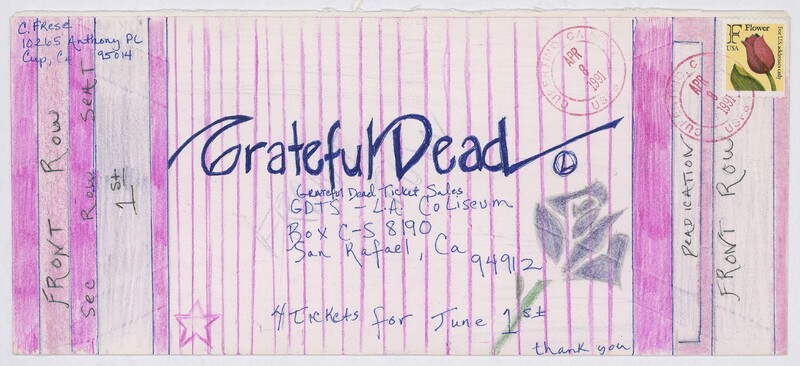 C. FRese
10265 Anthony PL
Cup, Ca 95014
FRONT Row
Sec Row Seat
1st
CUPERTINO, CA
APR
8
1991
USPS
F Flower
USA
For U.S. addresses only
CUPERTINO, CA
APR
8
1991
USPS
Grateful Dead
Grateful Dead Ticket Sales
GDTS - L.A. Coliseum
Box C-S 8190
San Rafael, Ca
94912
4 Tickets for June 1st
thank you
DEADICATION
FRONT Row